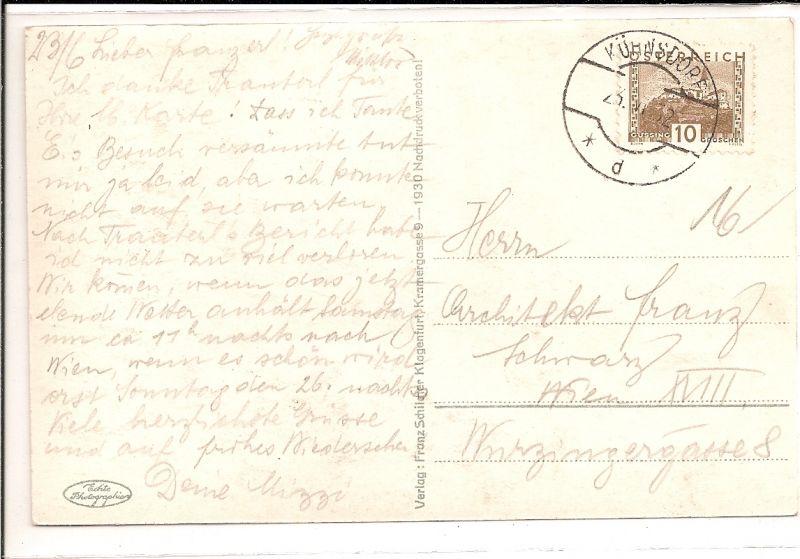 23/6 Lieber Franzerl!
Ich danke Trauterl für
Ihre lb. Karte! Dass ich Tante
E.'s Besuch versäumte tut
mir ja leid, aber ich konnte
nicht auf sie warten.
Nach Trauterl's Bericht habe
ich nicht zu viel verloren.
Wir kommen, wenn das jetzt
Wetter anhält Samstag
um ca 11h nachts nach
Wien, wenn es schön wird
erst Sonntag den 26. nachts
Viele herzlichste Grüsse
und auf frohes Wiedersehen
Deine Mizzi
Echte
Photographie
Verlag: Franz Schilcher Klagenfurt, Kramergasse 9 — 1930 Nachdruck verboten!
KÜHNSDORF
d
ÖSTERREICH
GÜSSING 10 GROSCHEN
16
Herrn
Architekt Franz
Schwarz
Wien XVIII
Wurzingergasse 8